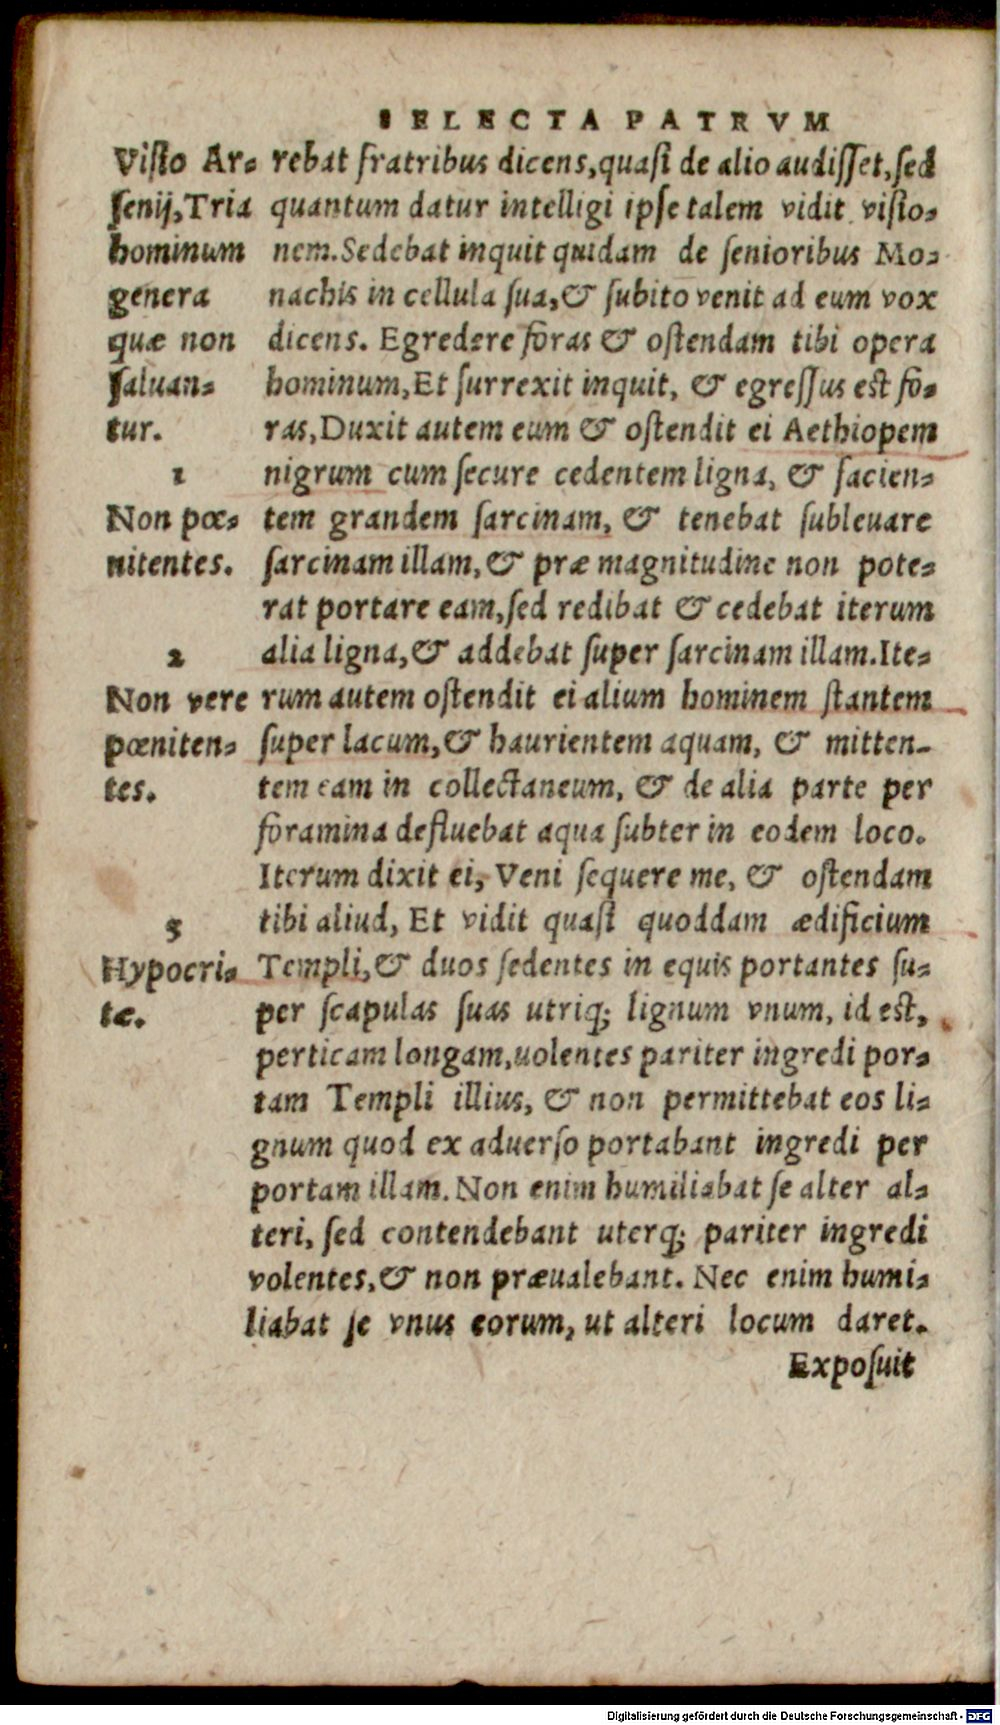 SELECTA PATRVM
Visio Ar-
senij, Tria
hominum
genera
quæ non
saluan-
tur.
1
Non pœ-
nitentes.
2
Non vere
pœniten-
tes.
3
Hypocri-
tæ.
rebat fratribus dicens, quasi de alio audisset, sed
quantum datur intelligi ipse talem vidit visio-
nem. Sedebat inquit quidam de senioribus Mo-
nachis in cellula sua, & subito venit ad eum vox
dicens. Egredere foras & ostendam tibi opera
hominum, Et surrexit inquit, & egressus est fo-
ras, Duxit autem eum & ostendit ei Aethiopem
nigrum cum secure cedentem ligna, & facien-
tem grandem sarcinam, & tenebat subleuare
sarcinam illam, & præ magnitudine non pote-
rat portare eam, sed redibat & cedebat iterum
alia ligna, & addebat super sarcinam illam. Ite-
rum autem ostendit ei alium hominem stantem
super lacum, & haurientem aquam, & mitten-
tem eam in collectaneum, & de alia parte per
foramina defluebat aqua subter in eodem loco.
Iterum dixit ei, Veni sequere me, & ostendam
tibi aliud, Et vidit quasi quoddam ædificium
Templi, & duos sedentes in equis portantes su-
per scapulas suas utriq; lignum vnum, id est,
perticam longam, uolentes pariter ingredi por-
tam Templi illius, & non permittebat eos li-
gnum quod ex aduerso portabant ingredi per
portam illam. Non enim humiliabat se alter al-
teri, sed contendebant uterq; pariter ingredi
volentes, & non præualebant. Nec enim humi-
liabat se vnus eorum, ut alteri locum daret.
Exposuit
Digitalisierung gefördert durch die Deutsche Forschungsgemeinschaft - DFG